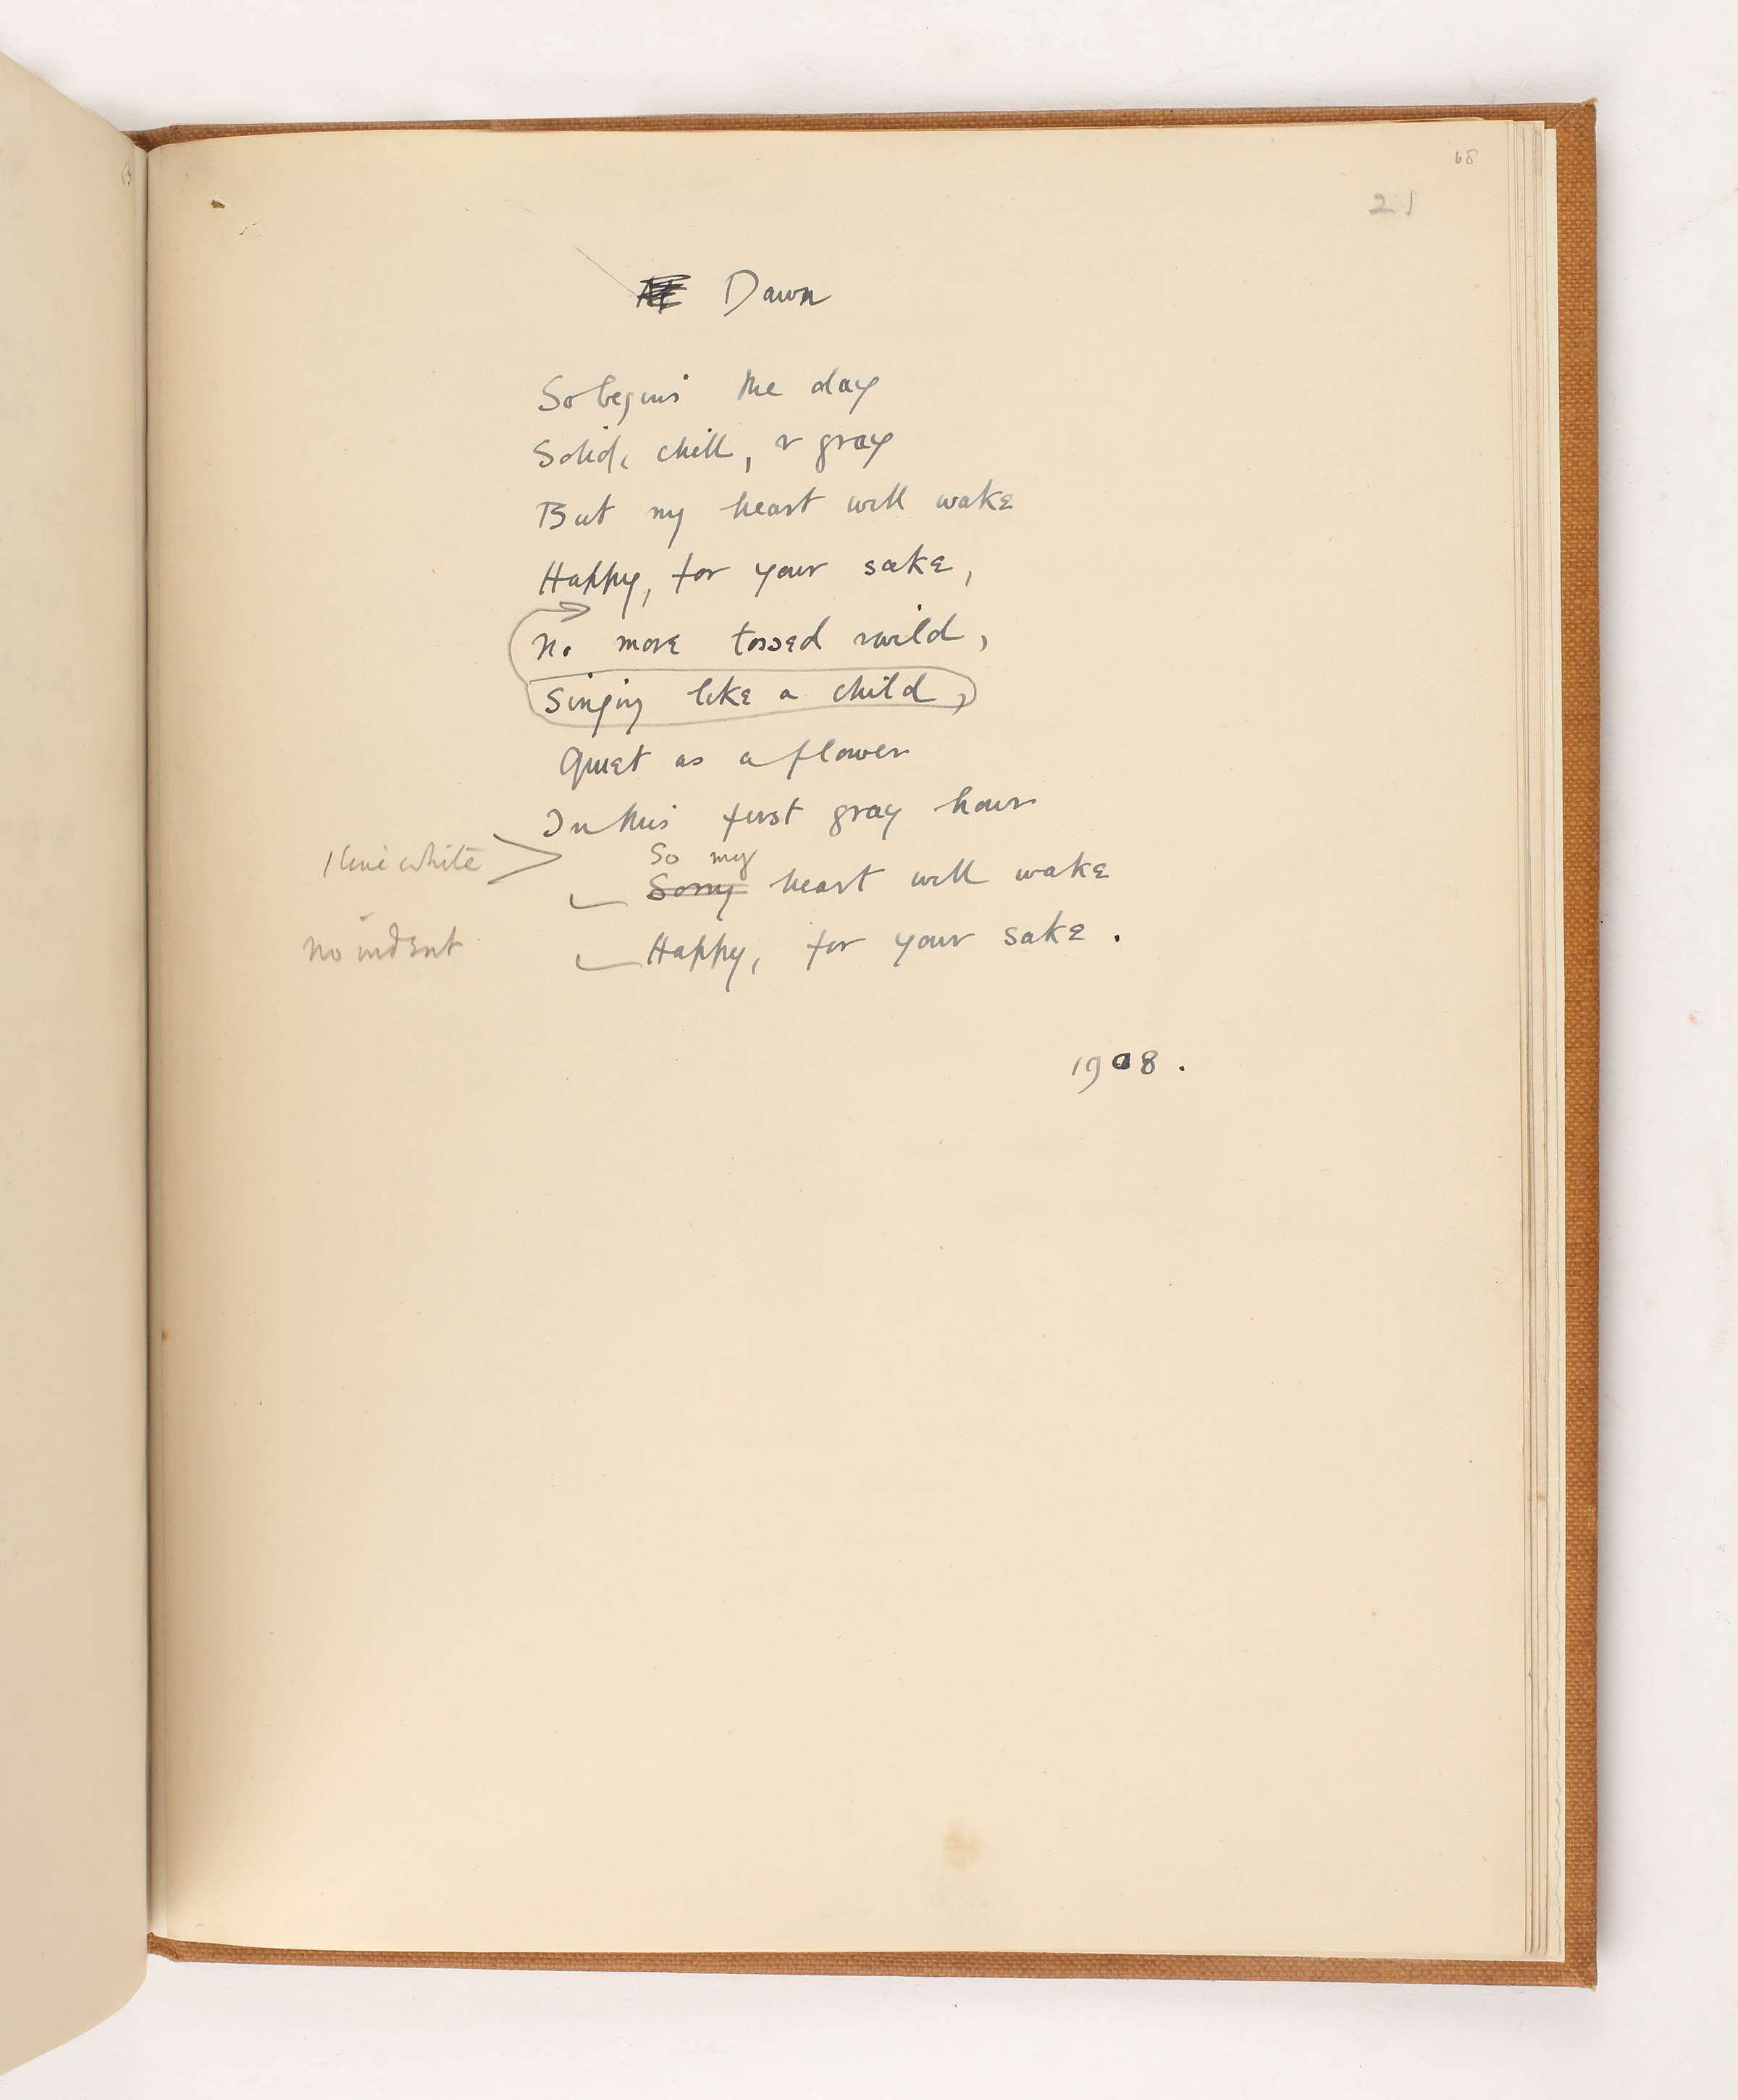 68
21
Dawn
So begins the day
Solid, chill, & gray
But my heart will wake
Happy, for your sake,
No more tossed wild,
Singing like a child,
Quiet as a flower
In this first gray hour
1 line white
So my
Sorry heart will wake
no indent
Happy, for your sake.
1908.